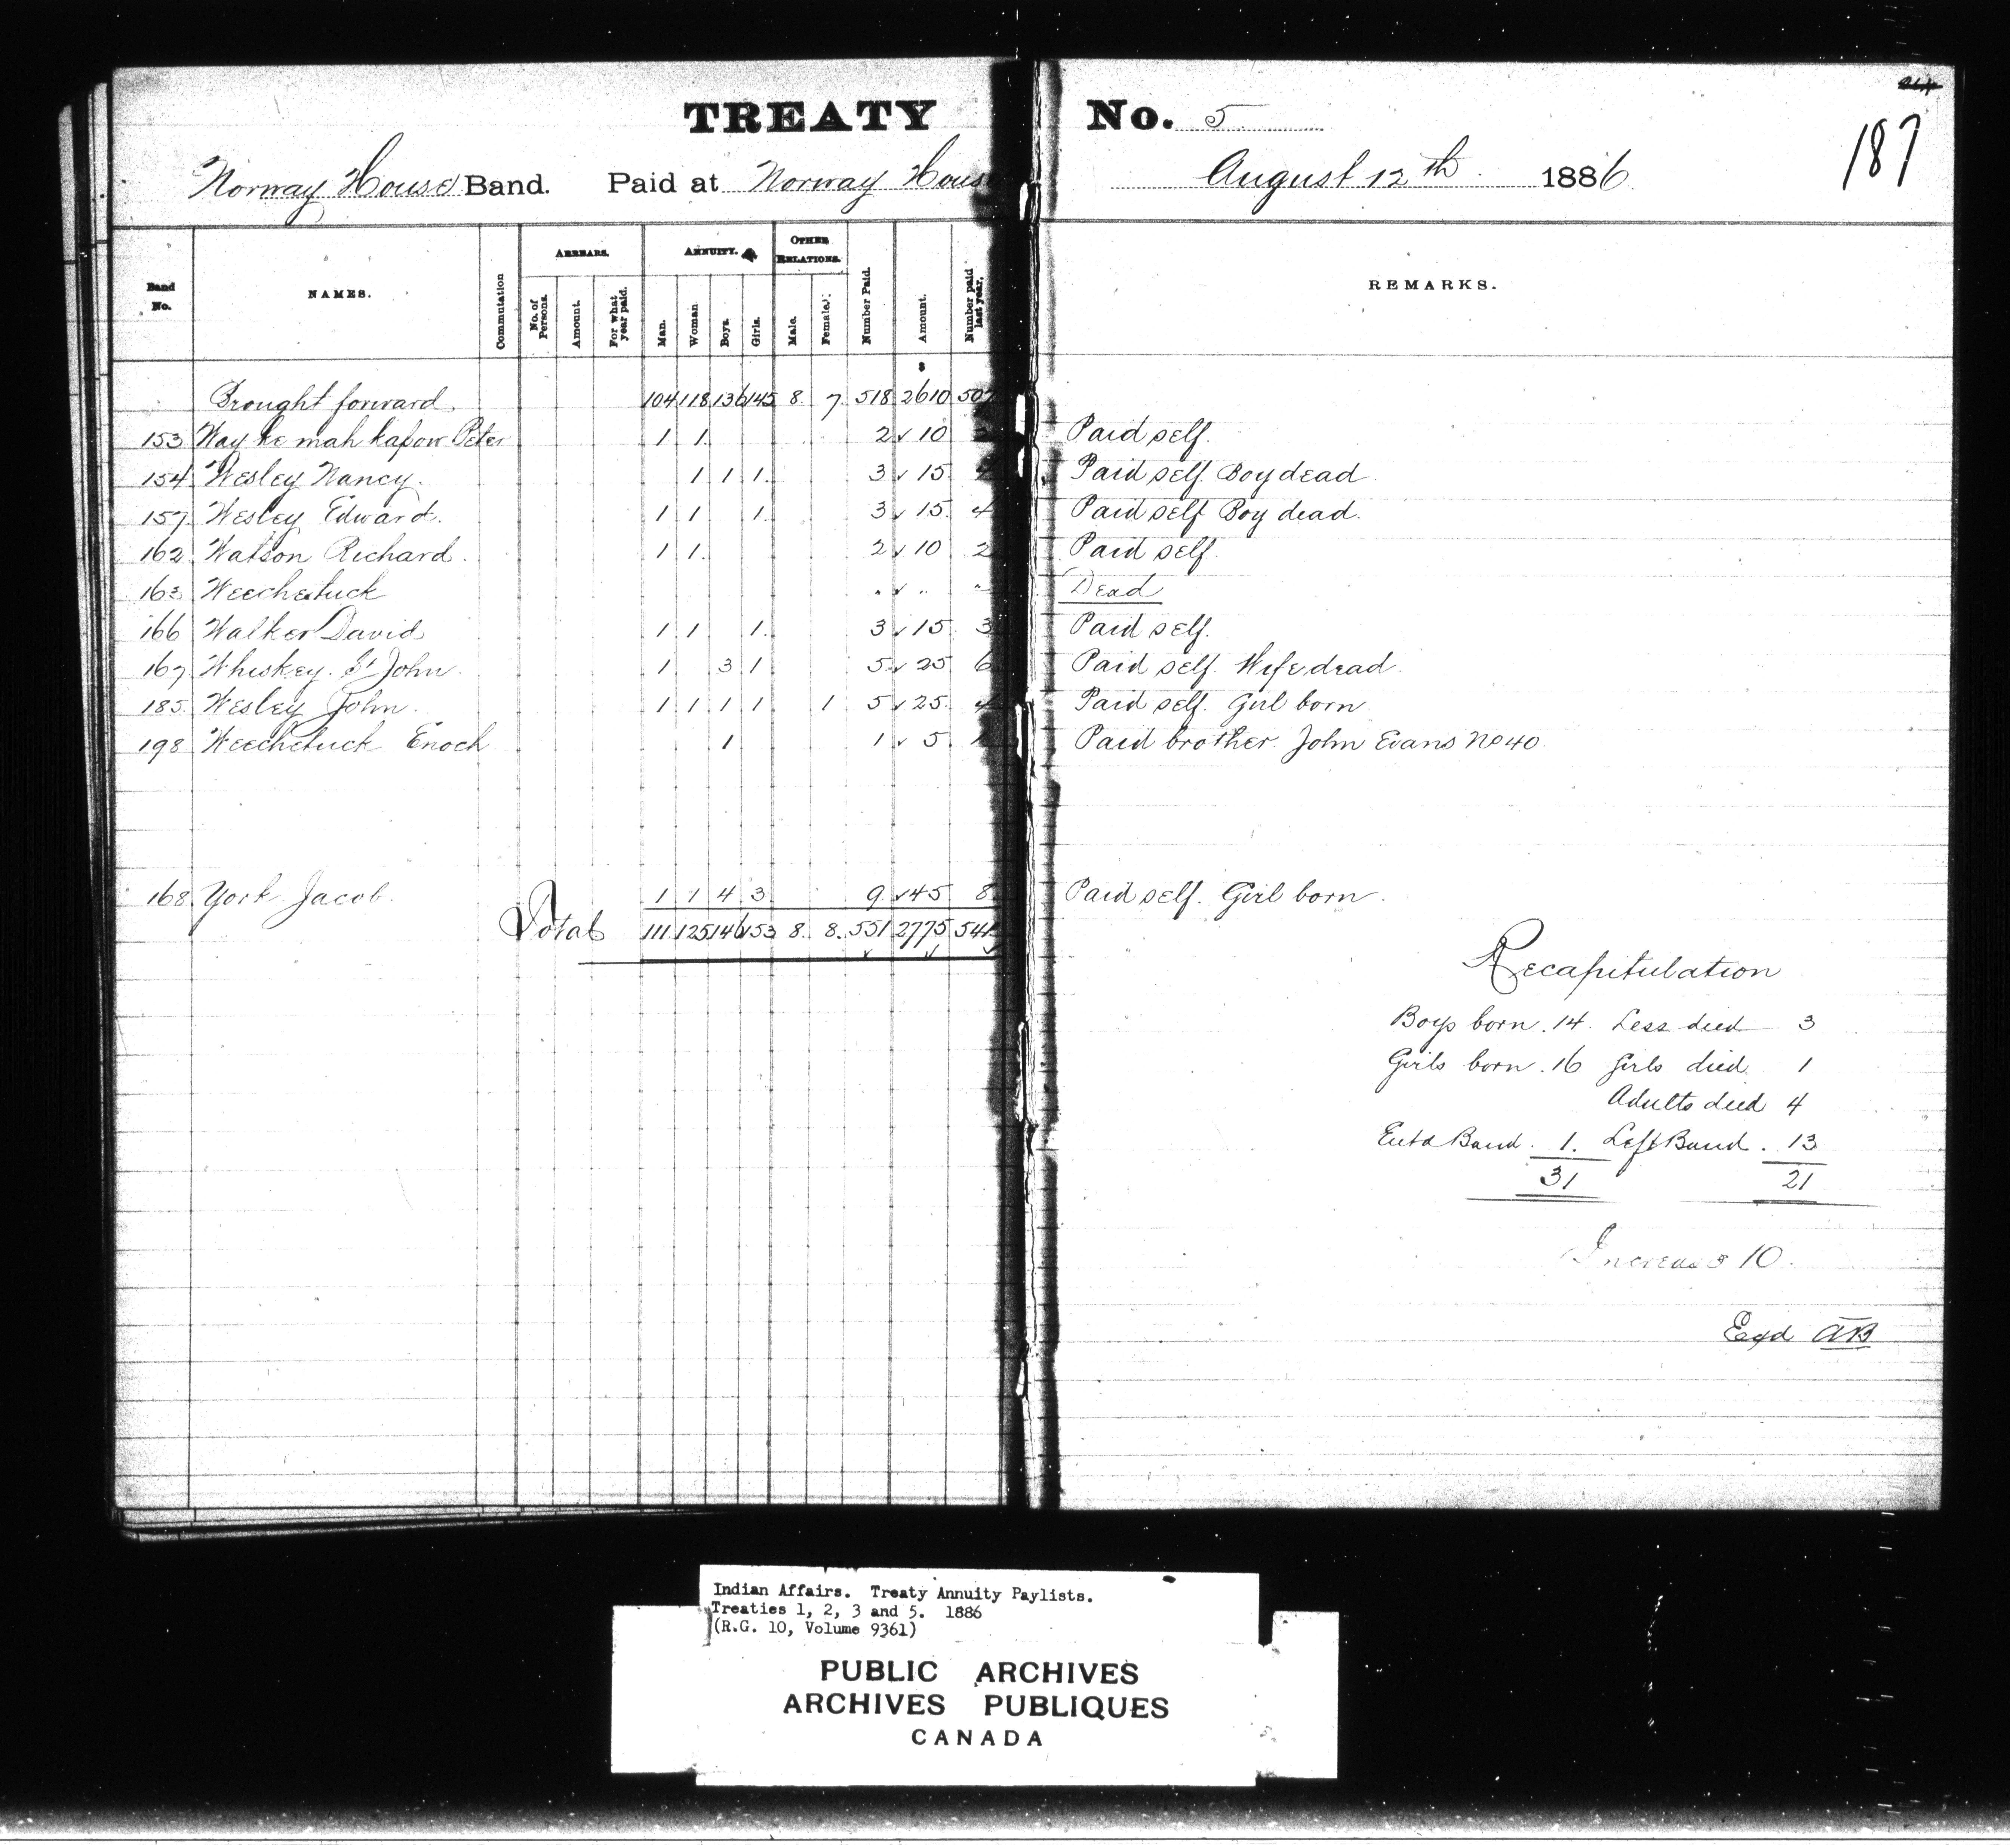 TREATY No. 5
187
Norway House Band. Paid at Norway House August 12th. 1886
Band No. NAMES. Commutation ARREARS. No. of Persons. Amount. For what year paid. ANNUITY. Man. Woman Boys. Girls. OTHER RELATIONS. Male. Female. Number Paid. Amount. Number paid last year. REMARKS.
Brought forward. 104 118 136 145 8. 7. 518 2610 507
153 Way ke mah kapow Peter 1 1. 2 10 2 Paid self.
154 Wesley Nancy. 1 1 1. 3 15 4 Paid self. Boy dead
157 Wesley Edward. 1 1 1. 3 15. 4 Paid self Boy dead.
162 Watson Richard. 1 1. 2 10 2 Paid self.
163 Weechetuck " " " Dead
166 Walker David 1 1 1. 3 15 3 Paid self.
167 Whiskey. St John. 1 3 1 5 25 6 Paid self. Wife dead.
185. Wesley John. 1 1 1 1 1 5 25. 4 Paid self. Girl born
198 Weechetuck Enoch 1 1 5 1 Paid brother. John Evans No 40
168 York Jacob. 1 1 4 3 9. 45 8 Paid self. Girl born.
Total 111 125 146 153 8. 8. 551 2775 541
Recapitulation
Boys born. 14. Less died 3
Girls born. 16 Girls died. 1
Adults died 4
Entd Band. 1. Left Band. 13
31 21
Increase 10.
Exd AB
Indian Affairs. Treaty Annuity Paylists.
Treaties 1, 2, 3 and 5. 1886
(R.G. 10, Volume 9361)
PUBLIC ARCHIVES
ARCHIVES PUBLIQUES
CANADA